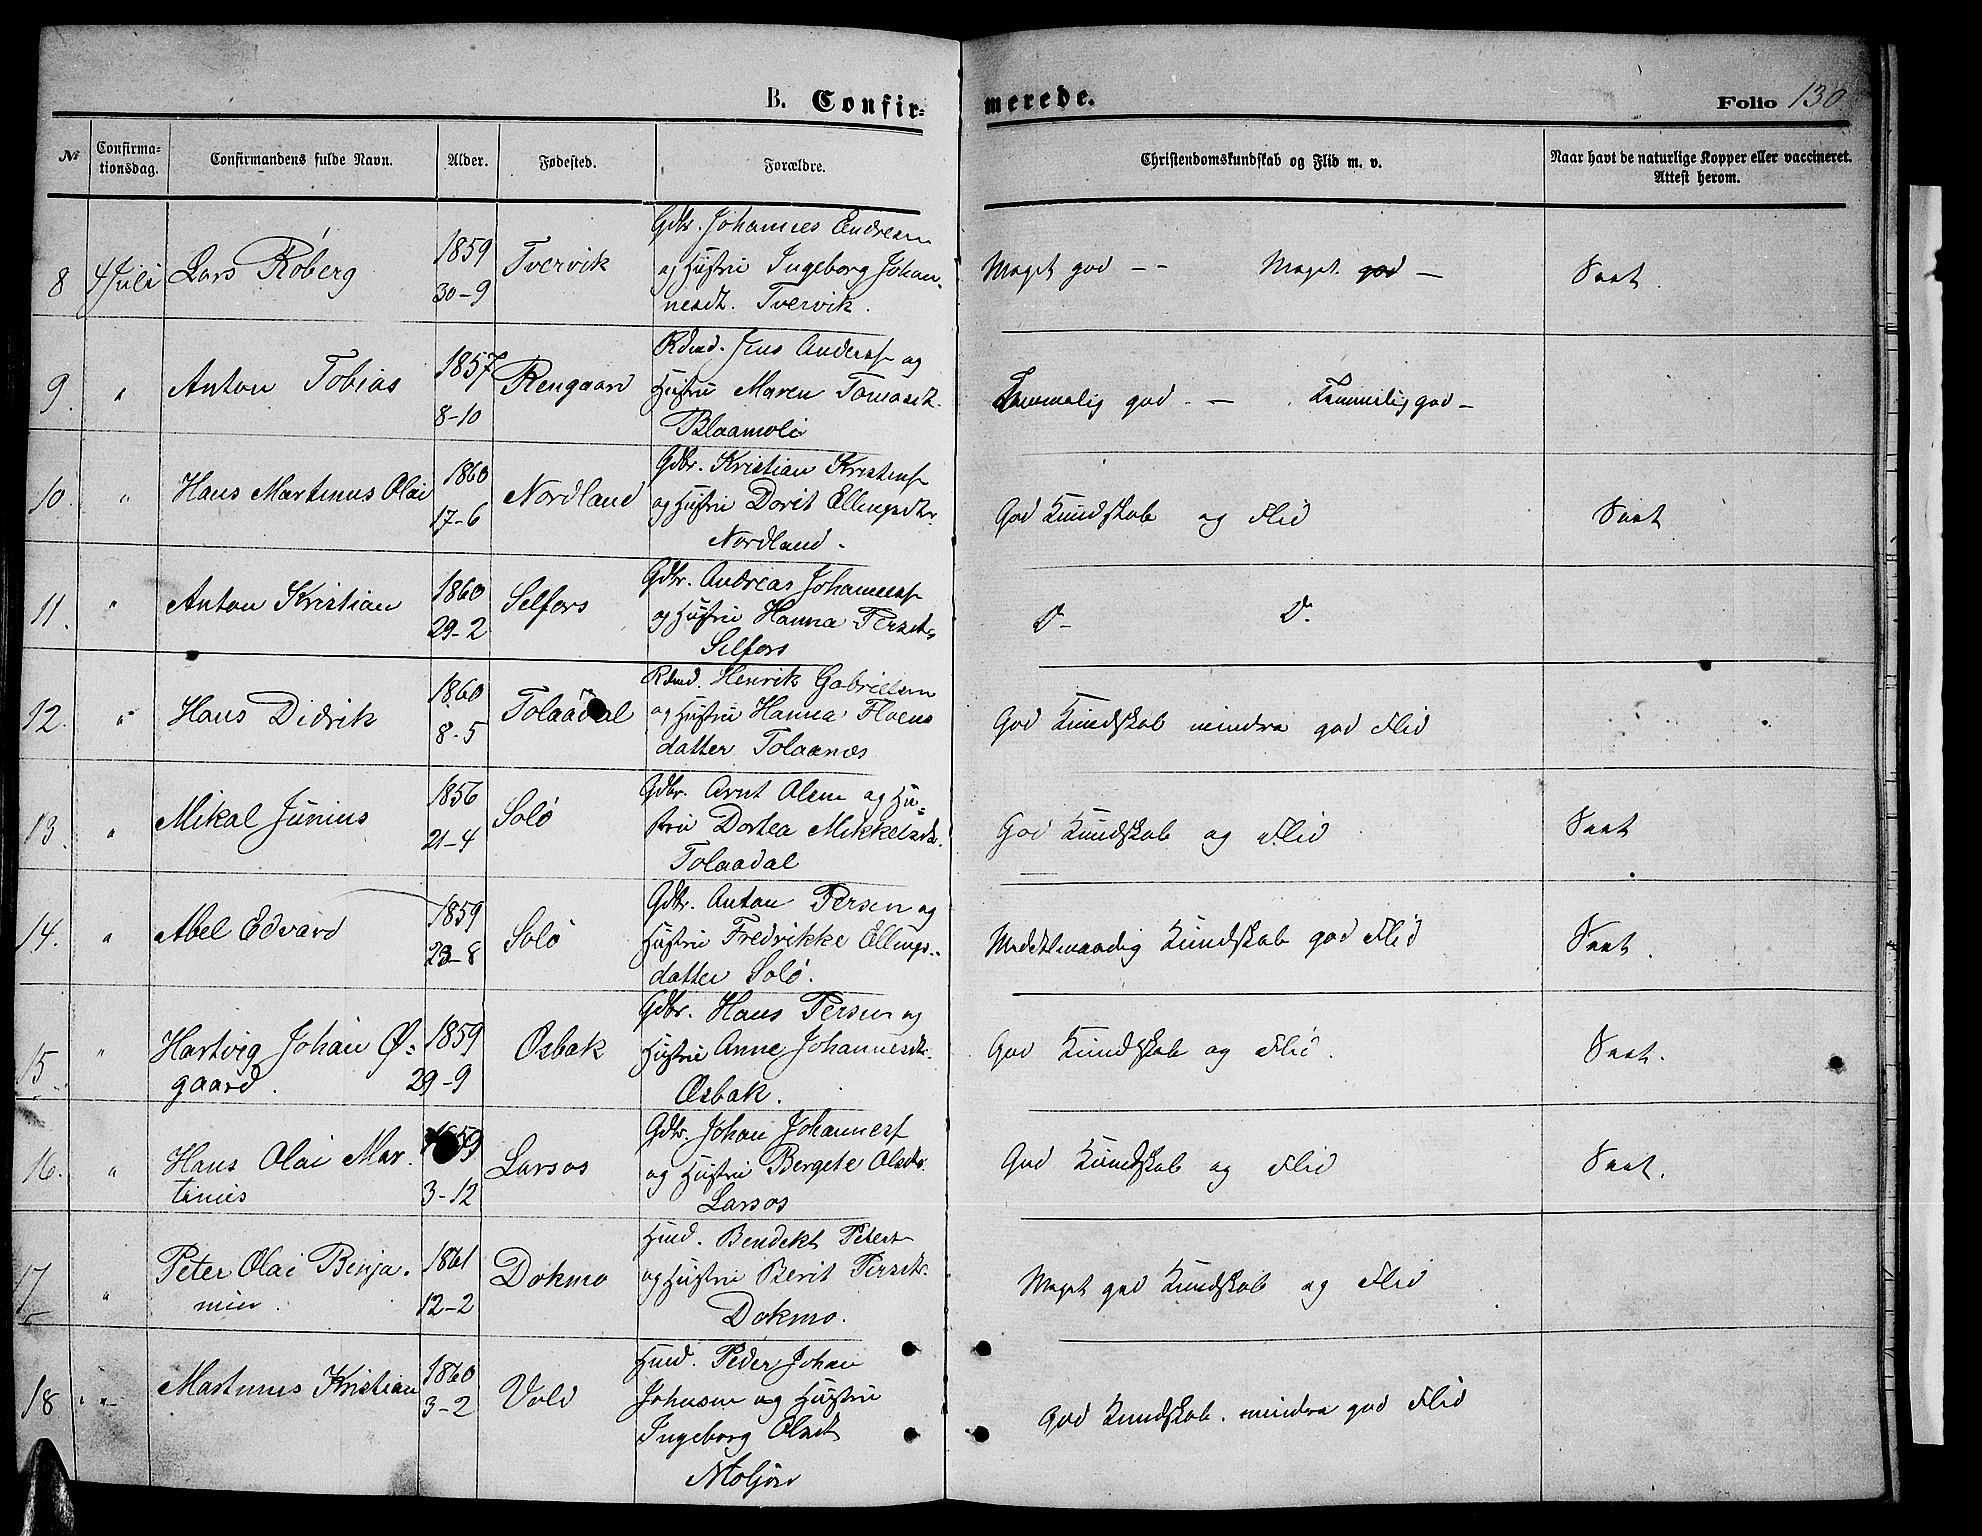 B. Confir=
merede.
Folio 130
№
Confirma-
tionsdag.
Confirmandens fulde Navn.
Alder.
Fødested.
Forældre.
Christendomskundskab og Flid m. v.
Naar havt de naturlige Kopper eller vaccineret.
Attest herom.
8 4 Juli Lars Röberg 1859 30-9 Tvervik
Gdbr. Johannes Andresen
og Hustru Ingeborg Johan-
nesdt. Tvervik.
Meget god -- Meget god -
9. " Anton Tobias 1857 8-10 Rengaard
Rdmd. Jens Andersf og
Hustru Maren Tomasdt.
Blaamoli
Temmelig god. - Temmelig god -
10. " Hans Martinus Olai 1860 17-6 Nordland
Gdbr. Kristian Kristensf
og Hustru Dorit Ellingsdtr.
Nordland.
God Kundskab og Flid
11. " Anton Kristian 1860 29-2 Selfors
Gdbr. Andreas Johannesf
og Hustru Hanna Persdtr
Selfors
D- D.
12. " Hans Didrik 1860 8-5 Tolaadal
Rdmd. Henrik Gabrielsen
og Hustru Hanna
datter Tolaanes
God Kundskab mindre god Flid
13. " Mikal Junius 1856 21-4 Solö
Gdbr. Arnt Olsen og Hu=
stru Dortea Mikkelsdtr.
Tolaadal
God Kundskab og Flid
14. " Abel Edvard 1859 23-8 Solö
Gdbr. Anton Persen og
Hustru Fredrikke Ellings-
datter Solö.
Middelmaadig Kundskab god Flid
15. " Hartvig Johan Ø=
gaard. 1859 29-9 Osbak
Gdbr. Hans Persen og
Hustru Anne Johannesdtr.
Osbak.
God Kundskab og Flid.
16. " Hans Olai Mar-
tinus 1859 3-12 Larsos
Gdbr. Johan Johannesf
og Hustru Bergete Olsdtr.
Larsos
God Kundskab og Flid
17 " Peter Olai Benja-
min. 1861 12-2 Dokmo
Hmd. Bendikt Petersf
og Hustru Berit Persdtr.
Dokmo.
Meget god Kundskab og Flid
18 " Martinus Kristian 1860 3-2 Vold
Hmd. Peder Johan
Johnsen og Hustru
Ingeborg Olsdt
Moljord
God Kundskab. mindre god Flid